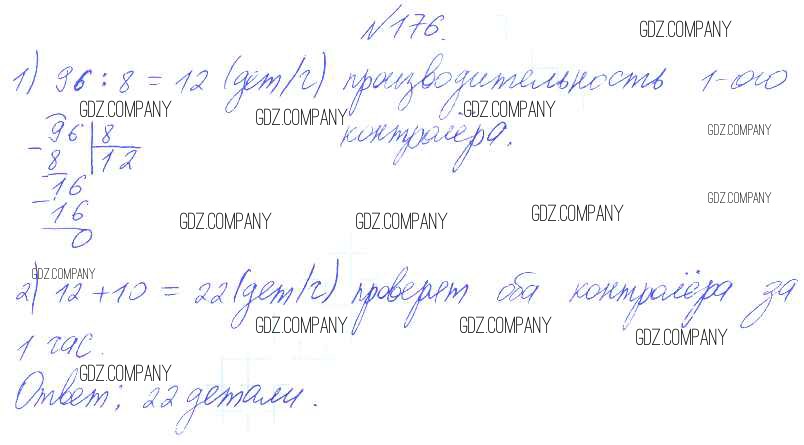 №176.
GDZ.COMPANY
1) 96 : 8 = 12 (дет/ч) производительность 1-ого
GDZ.COMPANY GDZ.COMPANY GDZ.COMPANY
контролёра.
GDZ.COMPANY
96 | 8
- 8 | 12
16
- 16
0
GDZ.COMPANY
GDZ.COMPANY GDZ.COMPANY GDZ.COMPANY
GDZ.COMPANY
2) 12 + 10 = 22 (дет/ч) проверят оба контролёра за
GDZ.COMPANY GDZ.COMPANY GDZ.COMPANY
1 час.
GDZ.COMPANY
Ответ: 22 детали.